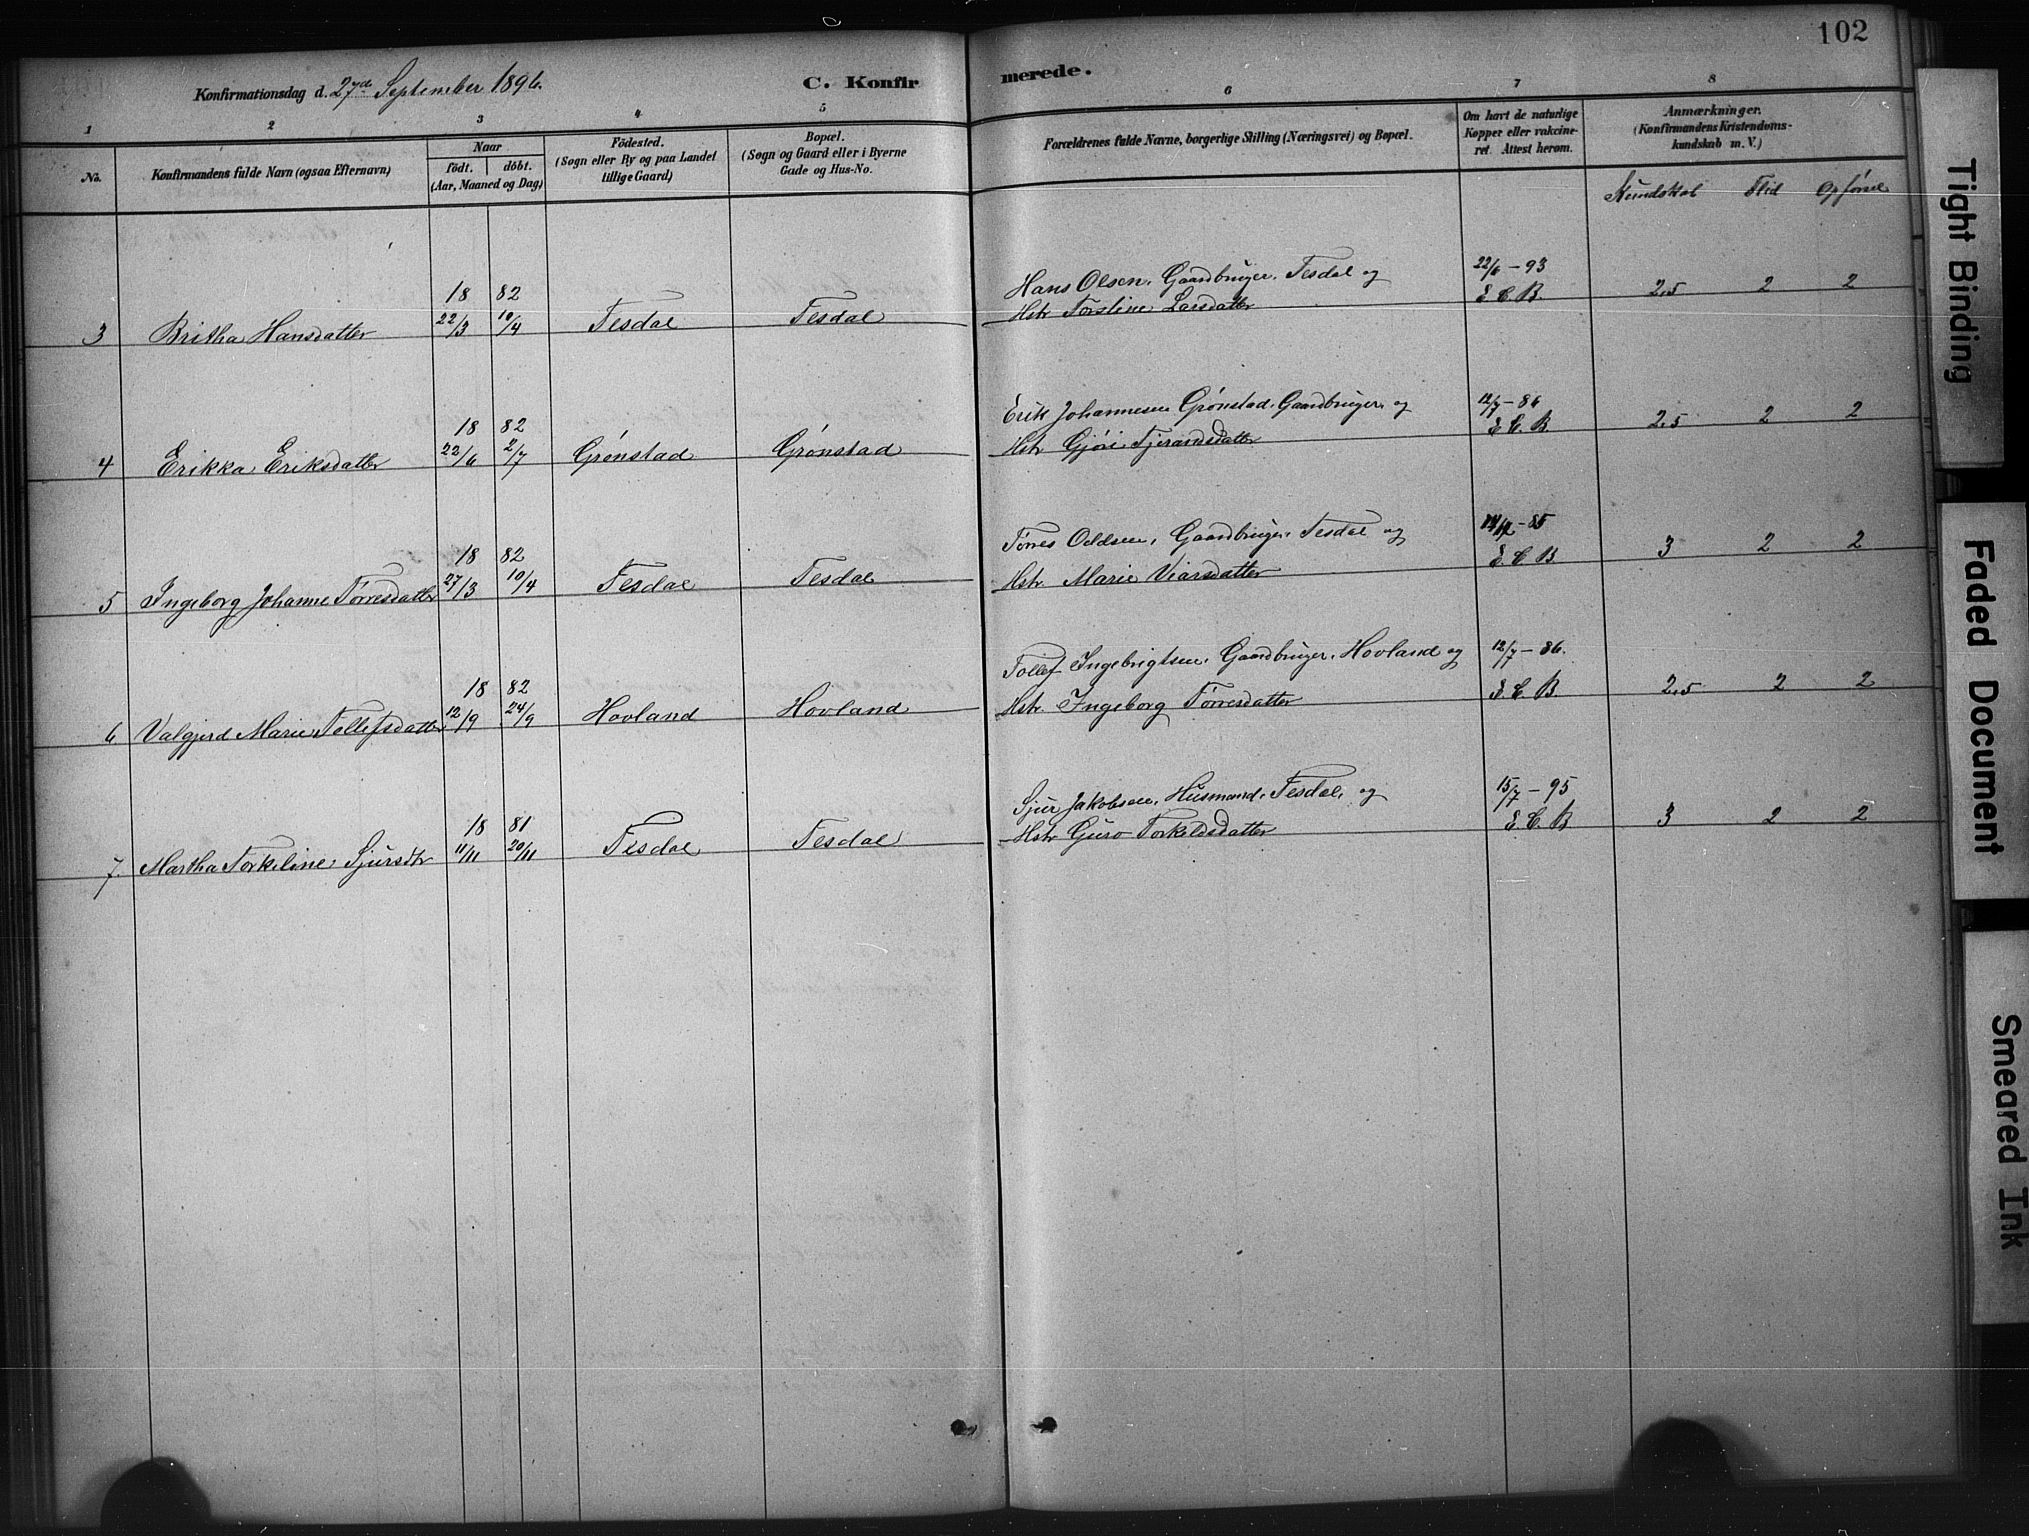 102
Konfirmationsdag d. 27de September 1896.
C. Konfirmerede.
1 2 3 4 5 6 7 8
No.
Konfirmandens fulde Navn (ogsaa Efternavn)
Naar
født. døbt.
(Aar, Maaned og Dag)
Födested.
(Sogn eller By og paa Landet
tillige Gaard)
Bopæl.
(Sogn og Gaard eller i Byerne
Gade og Hus-No.
Forældrenes fulde Navne, borgerlige Stilling (Næringsvei) og Bopæl.
Om havt de naturlige
Kopper eller vakcine-
ret. Attest herom.
Anmærkninger.
(Konfirmandens Kristendoms-
kundskab m. V.)
Kundskab Flid Opførsel
18 82
3 Britha Hansdatter 22/3 10/4 Tesdal Tesdal
Hans Olsen, Gaardbruger, Tesdal og 22/6-93
Hstr Torsline Larsdatter E. C. B. 2,5 2 2
18 82
4 Erikka Eriksdatter 22/6 2/7 Grønstad Grønstad
Erik Johannesen Grønstad, Gaardbruger, og 12/7-86
Hstr Gjøri Tjerandsdatter E. C. B. 2,5 2 2
18 82
5 Ingeborg Johanne Tørresdatter 27/3 10/4 Tesdal Tesdal
Tørres Oddsen, Gaardbruger, Tesdal og -85
Hstr. Marie Viarsdatter E. C. B 3 2 2
18 82
6 Valgjerd Marie Tollefsdatter 12/9 24/9 Hovland Hovland
Tollef Ingebrigtsen, Gaardbruger, Hovland og 12/7-86.
Hstr. Ingeborg Tørresdatter E. C. B. 2,5 2 2
18 81
7. Martha Torkeline Sjursdtr 11/11 20/11 Tesdal Tesdal
Sjur Jakobsen, Husmand, Tesdal, og 15/7-95
Hstr Guro Torkeldsdatter E. C. B 3 2 2
Tight Binding
Faded Document
Smeared Ink